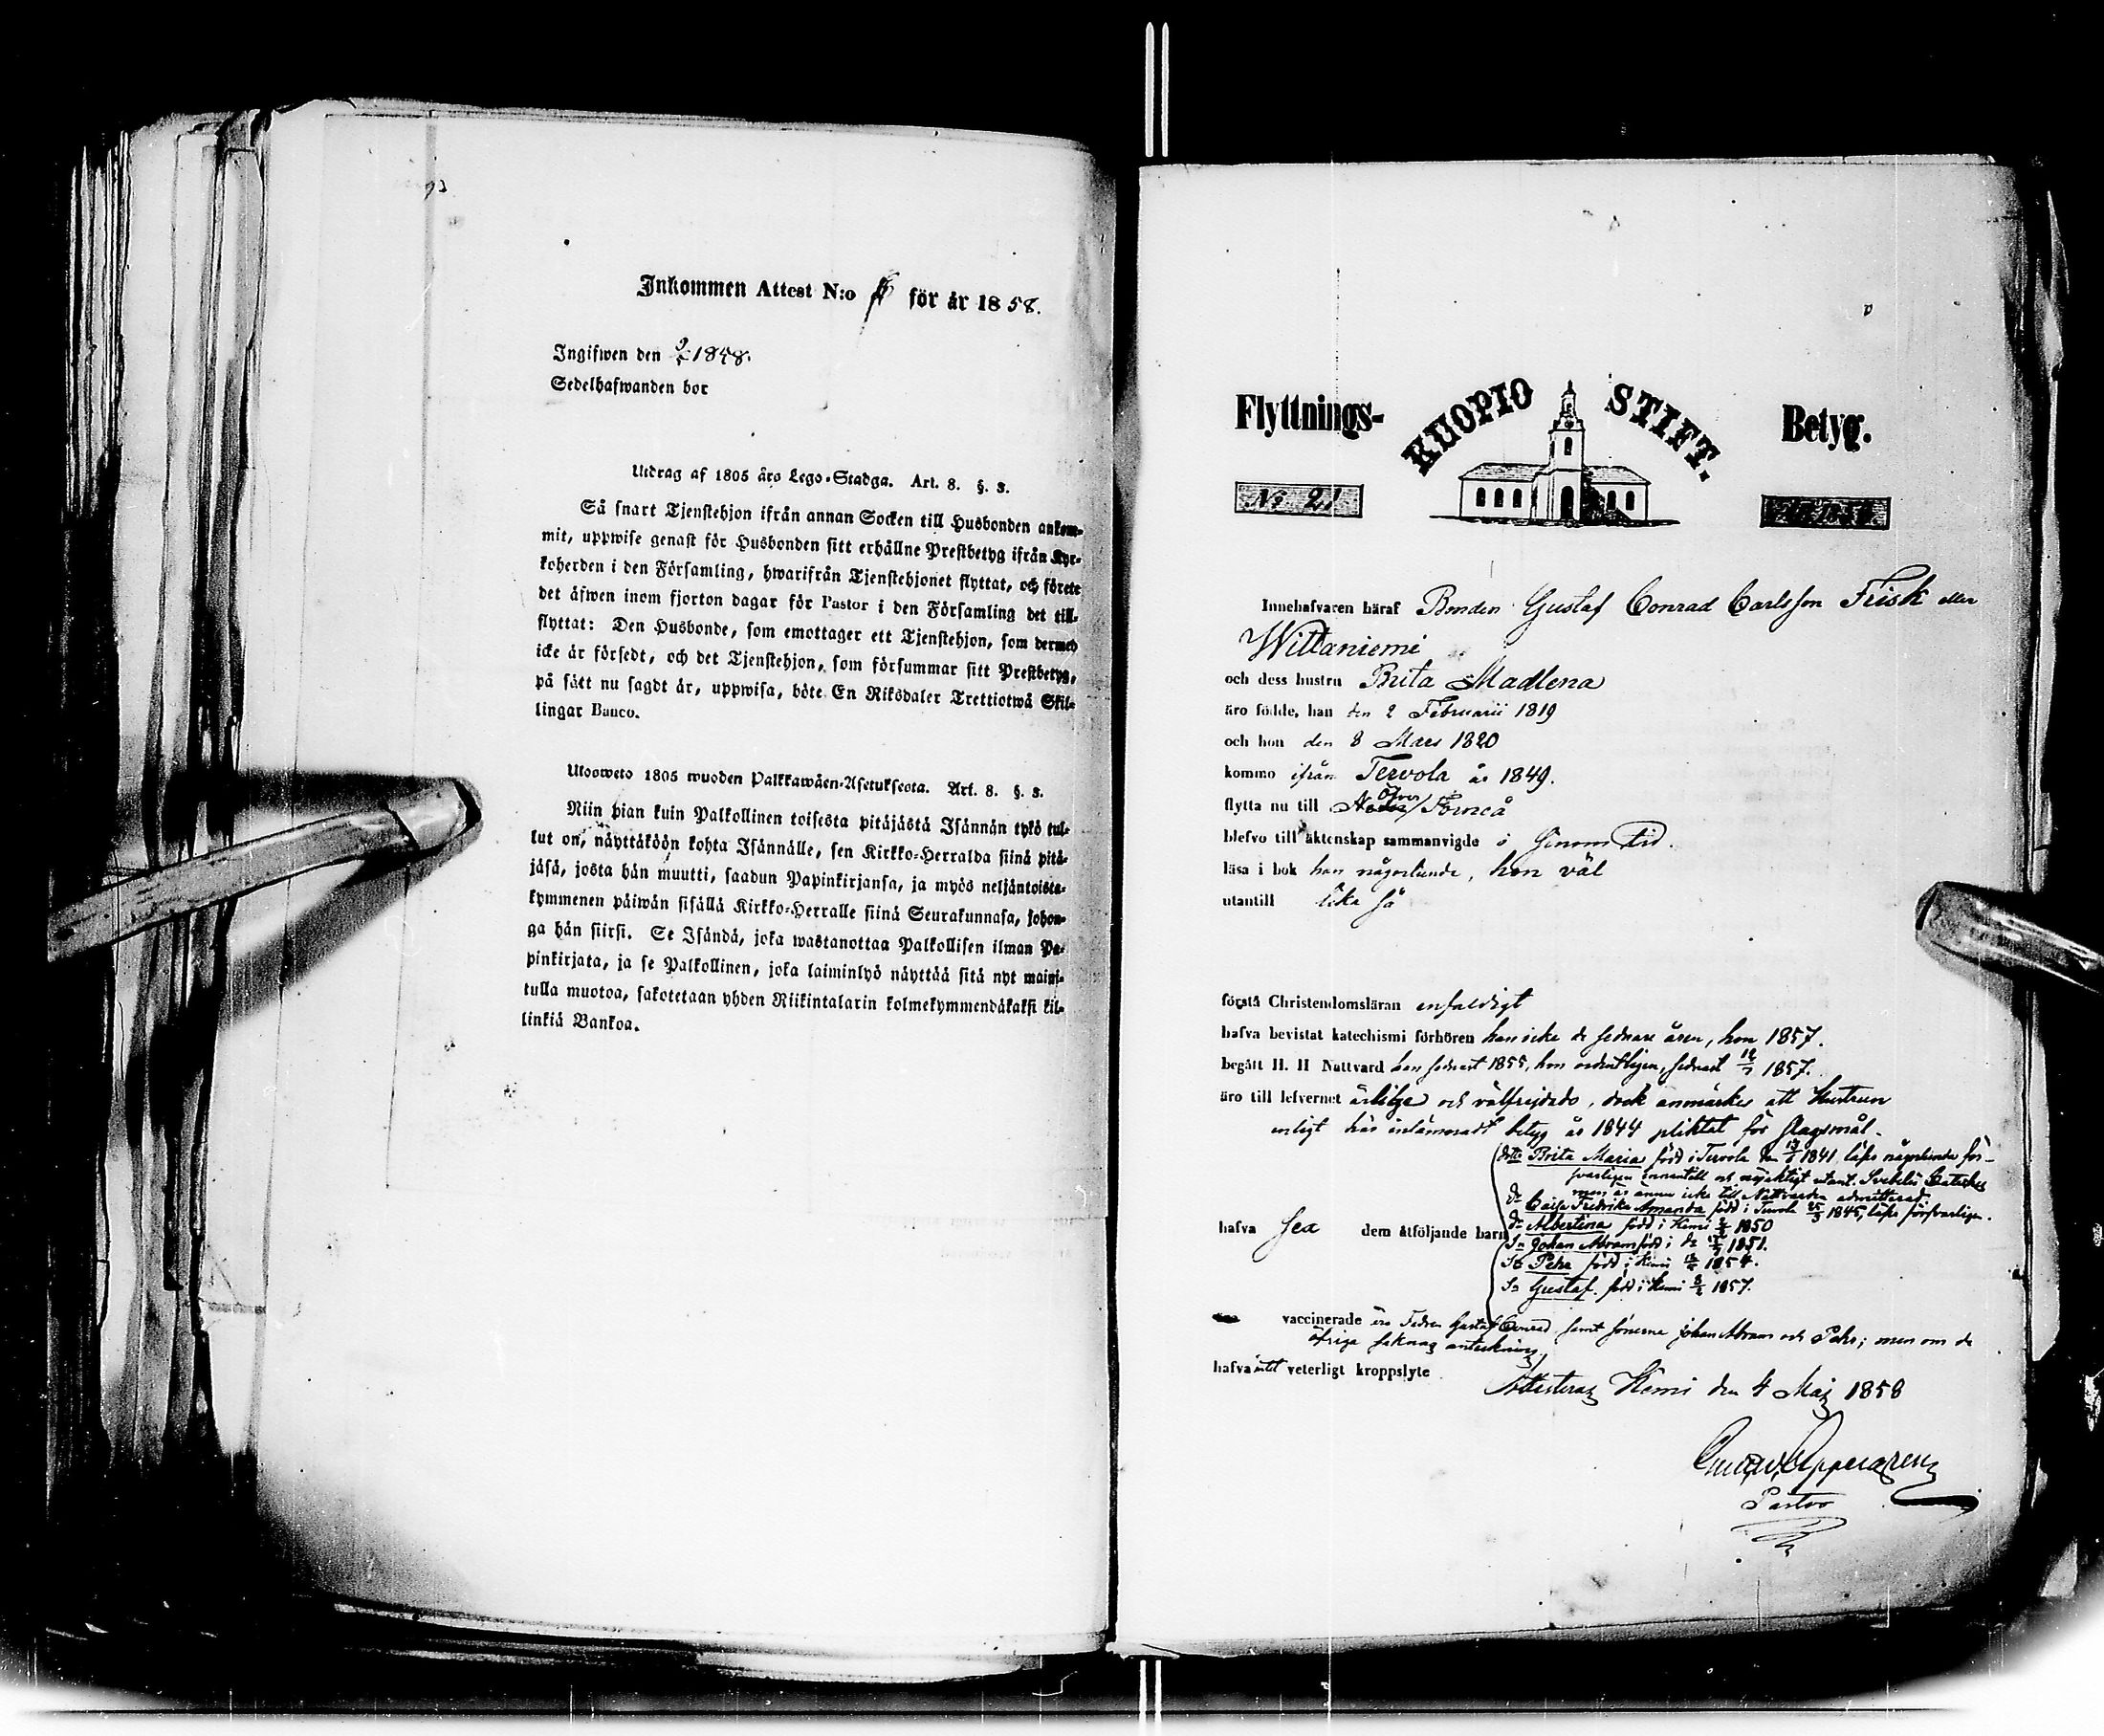 Inkommen Attest N:o för år 1858.
Ingifwen den 9/5 1858.
Sedelhafwanden bor
Utdrag af 1805 års Lego-Stadga. Art. 8. §. 3.
Så snart Tjenstehjon ifrån annan Socken till Husbonden ankom-
mit, uppwise genast för Husbonden sitt erhållne Prestbetyg ifrån Kyr-
koherden i den Församling, hwarifrån Tjenstehjonet flyttat, och förete
det äfwen inom fjorton dagar för Pastor i den Församling det till-
flyttat: Den Husbonde, som emottager ett Tjenstehjon, som dermed
icke är försedt, och det Tjenstehjon, som försummar sitt Prestbetyg,
på sätt nu sagdt är, uppwisa, böte En Riksdaler Trettiotwå Skil-
lingar Banco.
Ulosweto 1805 wuoden Palkkawäen-Asetuksesta. Art. 8. §. 3.
Niin pian kuin Palkollinen toisesta pitäjästä Isännän tykö tul-
lut on, näyttäköön kohta Isännälle, sen Kirkko-Herralda siinä pitä-
jäsä, josta hän muutti, saadun Papinkirjansa, ja myös neljäntoista-
kymmenen päiwän sisällä Kirkko-Herralle siinä Seurakunnasa, johon-
ga hän siirsi. Se Isändä, joka wastanottaa Palkollisen ilman Pa-
pinkirjata, ja se Palkollinen, joka laiminlyö näyttää sitä nyt maini-
tulla muotoa, sakotetaan yhden Riikintalarin kolmekymmendäkaksi kil-
linkiä Bankoa.
Flyttnings- KUOPIO STIFT. Betyg.
No 21
Innehafvaren häraf Bonden Gustaf Conrad Carlsson Frisk eller
Wittaniemi
och dess hustru Brita Madlena
äro födde, han den 2 Februarii 1819
och hon den 8 Mars 1820
kommo ifrån Tervola år 1849.
Öfver
flytta nu till Neder/Torneå
blefvo till äktenskap sammanvigde i sinom tid.
läsa i bok han någorlunda, hon väl
utantill lika så
förstå Christendomsläran enfaldigt
hafva bevistat katechismi förhören han icke de sednare åren, hon 1857.
begått H. H Nattvard han sednast 1855, hon ordentligen, sednast 12/7 1857.
äro till lefvernet ärlige och välfrejdade, dock anmärkes att Hustrun
enligt här inlämnadt betyg år 1844 pliktat för slagsmål.
dottr Brita Maria född i Tervola den 1841, läser någorlunda för-
svarligen innantill och nöjaktigt utant. Svebelii Cateches
men är ännu icke till Nattvarden admitterad.
do Caisa Fredrika Amanda född i Tervola 25/3 1845, läser försvarligen.
do Albertina född i Kemi 1850
hafva sex dem åtföljande barn
Sn Johan Abram född i do 1851.
Sn Pehr född i Kemi 1854.
Sn Gustaf född i Kemi 1857.
vaccinerade äro Fadren Gustaf Conrad samt sönerne Johan Abram och Pehr; men om de
öfriga saknas anteckning.
hafva intet veterligt kroppslyte
Attesteras Kemi den 4 Maj 1858
Pastor